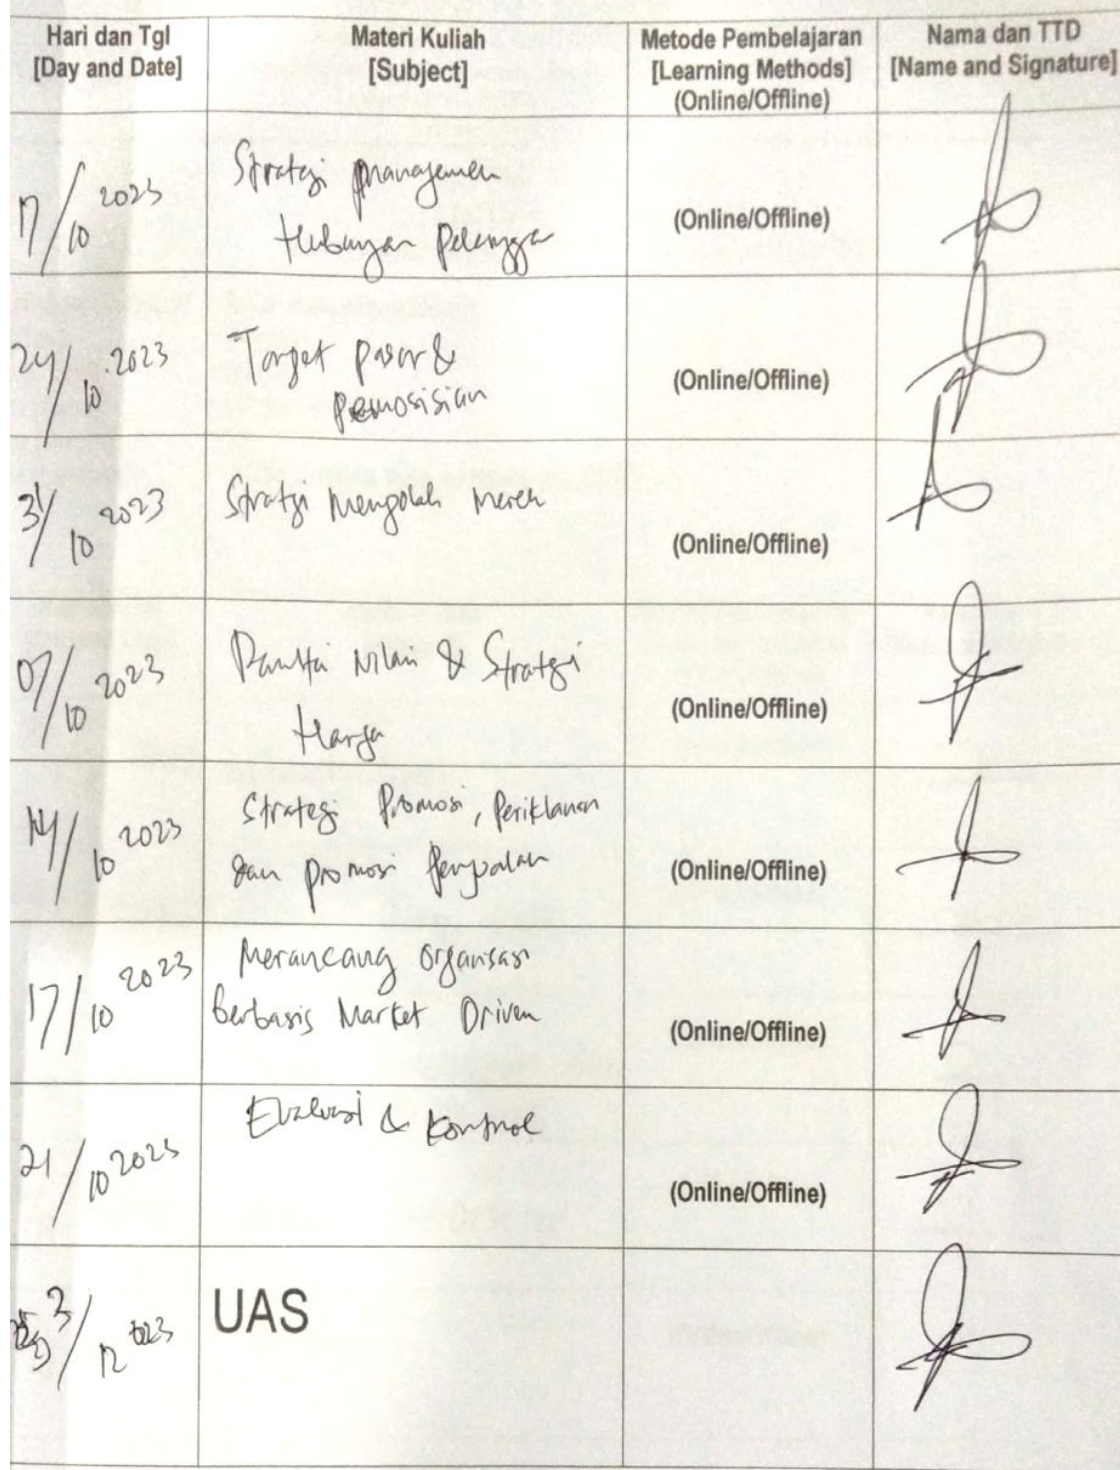 Hari dan Tgl
[Day and Date]
Materi Kuliah
[Subject]
Metode Pembelajaran
[Learning Methods]
(Online/Offline)
Nama dan TTD
[Name and Signature]
17/10 2023
Strategi manajemen
Hubungan Pelanggan
(Online/Offline)
24/10 2023
Target pasar &
Pemosisian
(Online/Offline)
31/10 2023
Strategi Mengolah Merek
(Online/Offline)
07/10 2023
Nilai & Strategi
Harga
(Online/Offline)
14/10 2023
Strategi Promosi, Periklanan
dan promosi Penjualan
(Online/Offline)
17/10 2023
Merancang organisasi
berbasis Market Driven
(Online/Offline)
21/10 2023
Evaluasi & Kontrol
(Online/Offline)
/12 2023
UAS